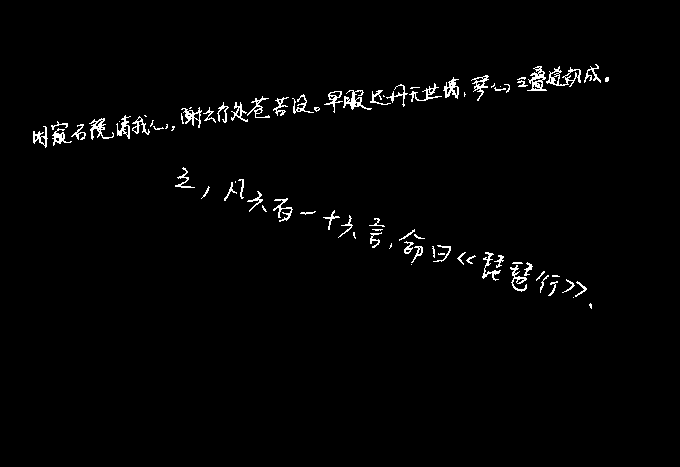 闲窥石镜清我心，谢公行处苍苔没。早服还丹无世情，琴心三叠道初成。
之，凡六百一十六言，命曰《琵琶行》、